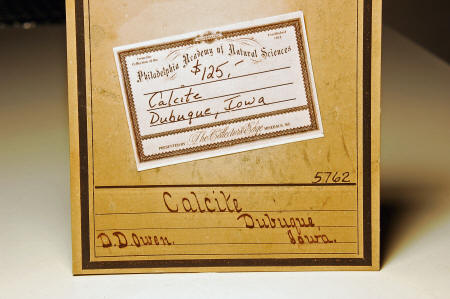 From the
Collection of the
Established
1812
Philadelphia Academy of Natural Sciences
$125,-
Calcite
Dubuque, Iowa
PRESENTED BY The Collector's Edge MINERALS, INC.
5762
Calcite
Dubuque,
D.D.Owen. Iowa.